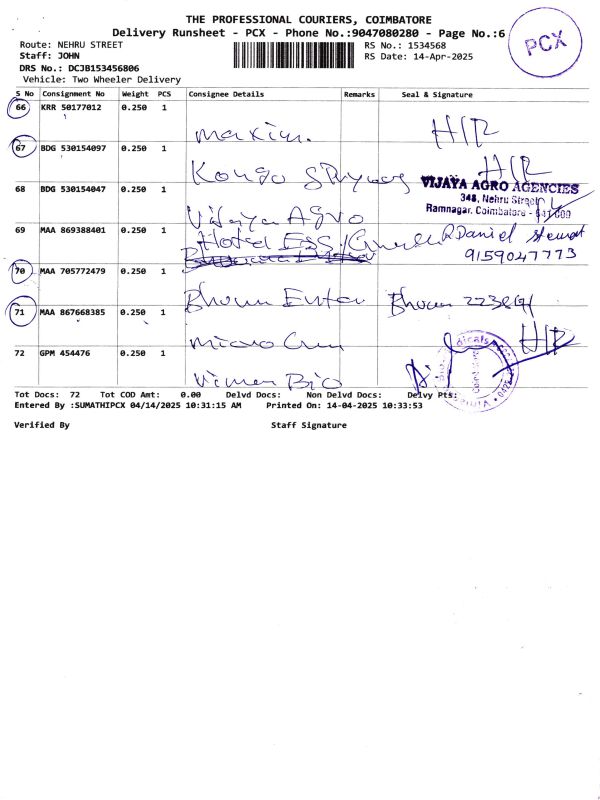 THE PROFESSIONAL COURIERS, COIMBATORE
Delivery Runsheet - PCX - Phone No.:9047080280 - Page No.:6
PCX
Route: NEHRU STREET
RS No.: 1534568
Staff: JOHN
RS Date: 14-Apr-2025
DRS No.: DCJB153456806
Vehicle: Two Wheeler Delivery
S No Consignment No Weight PCS Consignee Details Remarks Seal & Signature
66 KRR 50177012 0.250 1
Maxim. H/R
67 BDG 530154097 0.250 1
Kongo H/R
68 BDG 530154047 0.250 1
VIJAYA AGRO AGENCIES
348, Nehru Street
Ramnagar, Coimbatore - 641 009
Vijaya Agro
69 MAA 869388401 0.250 1
Hotel Daniel Stewart
9159047773
70 MAA 705772479 0.250 1
71 MAA 867668385 0.250 1
Micro H/R
72 GPM 454476 0.250 1
Bio
Tot Docs: 72 Tot COD Amt: 0.00 Delvd Docs: Non Delvd Docs: Delvy Pts:
Entered By :SUMATHIPCX 04/14/2025 10:31:15 AM Printed On: 14-04-2025 10:33:53
Verified By Staff Signature